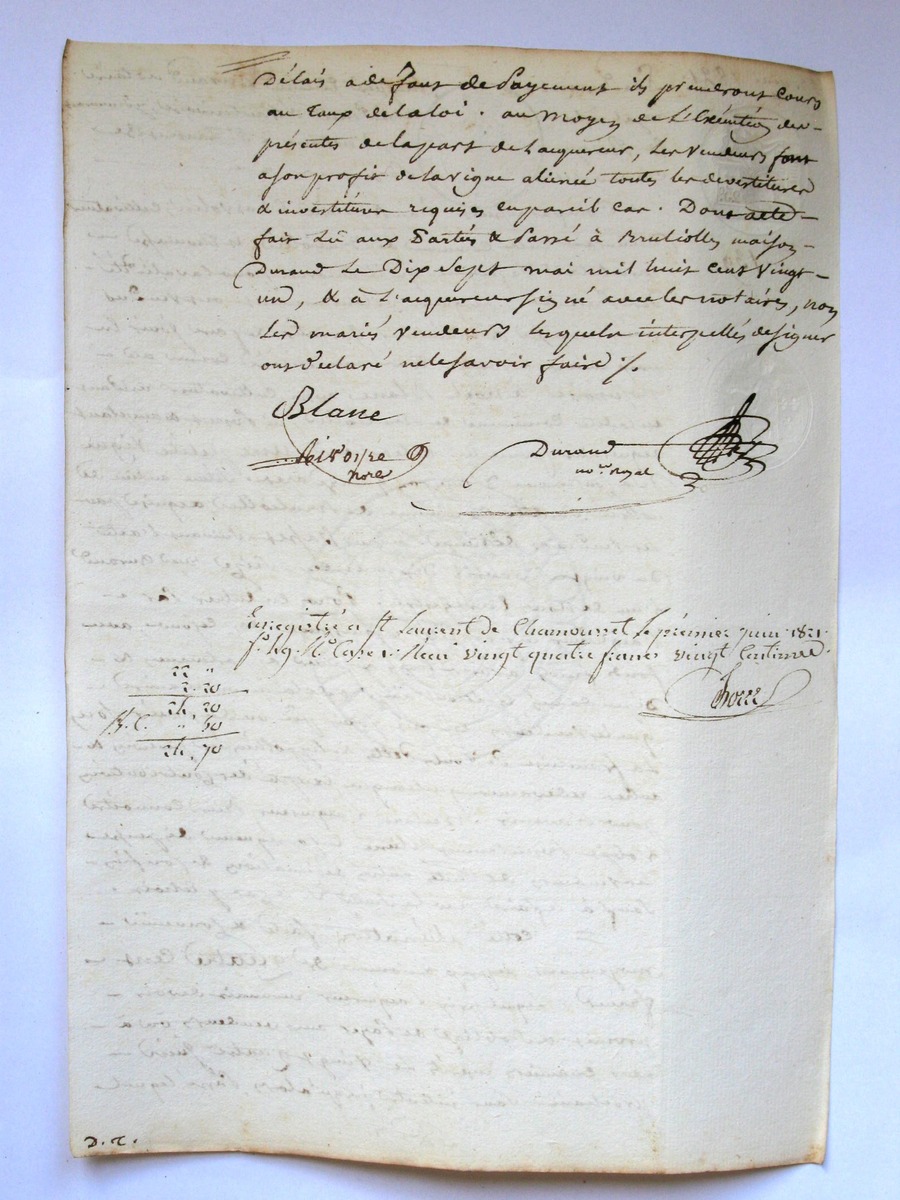 Délais à defaut de Payement ils prendront Cours
au Taux de la loi. au moyen de l'Exécution des
présentes de la part de L'acquereur, Les Vendeurs font
a son profit de la vigne alienée toutes les devestitures
& investitures requises en pareil cas. Dont acte
fait Lû aux Parties & Passé à Brulioles maison
Durand Le Dix Sept mai mil huit Cent Vingt
un, & à L'acquereur signé avec les notaires, non
Les mariés Vendeurs lesquels interpellés de signer
ont déclaré ne le savoir faire ./.
Blanc
nore
Durand
nore Royal
Enregistré a St Laurent de Chamousset le premier juin 1821.
fo. 49. Ro Case 1. Reçu vingt quatre francs vingt Centimes.
22 "
2. 20
24, 20
", 50
24, 70
D. T.